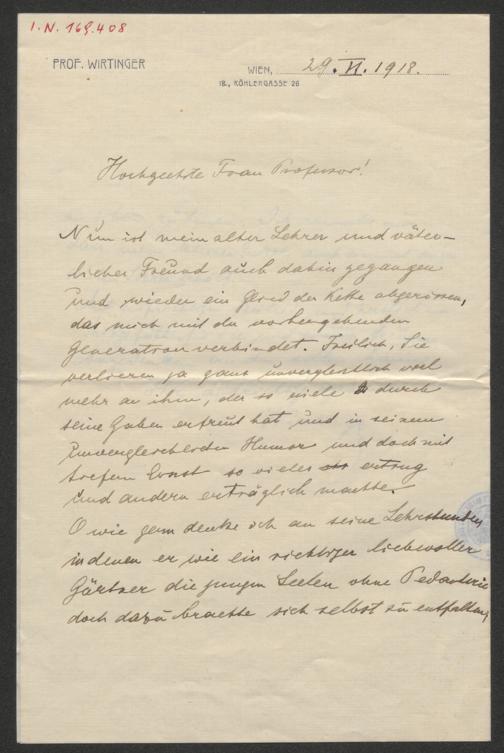 I.N. 169.408
PROF. WIRTINGER
WIEN, 29.VI.1918.
18., KÖHLERGASSE 26
Hochgeehrte Frau Professor!
Nun ist mein alter Lehrer und väter-
licher Freund auch dahin gegangen
und wieder ein Glied der Kette abgerissen,
das mich mit der vorhergehenden
Generation verbindet. Freilich, Sie
verlieren ja ganz unvergleichlich viel
mehr an ihm, der so viele durch
seine Gaben erfreut hat und in seinem
unvergleichlichen Humor und doch mit
tiefem Ernst so vieles ertrug
und andern erträglich machte.
O wie gern denke ich an seine Lehrstunden
in denen er wie ein richtiger liebevoller
Gärtner die jungen Seelen ohne Pedanterie
doch dazu brachte sich selbst zu entfalten,